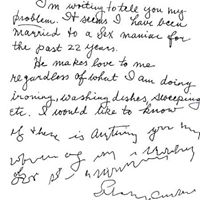 I'm writing to tell you my
problem. It seems I have been
married to a sex maniac for
the past 22 years.
He makes love to me
regardless of what I am doing
ironing, washing dishes, sweeping
etc. I would like to know
if there is anything you may